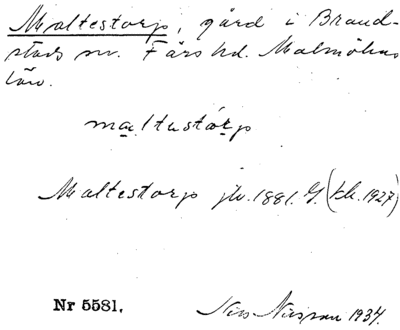 Maltestorp, gård i Brand-
stads sn. Färs hd. Malmöhus
län.
maltustórp
Maltestorp jb. 1881. G. (bl. 1927)
Nr 5581.
Nils Nilsson 1934.